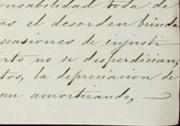 onsabilidad toda de
as el desorden brinda
casiones de injusti
rto no se desperdician,
tos, la depreciacion de
an amortizando,